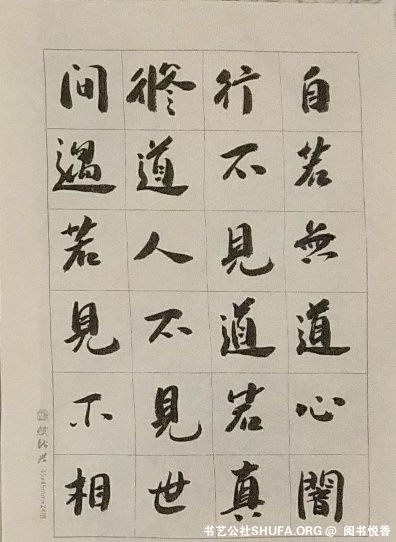 自若無道心闇
行不見道若真
修道人不見世
間過若見不相
书艺公社SHUFA.ORG @ 阅书悦香